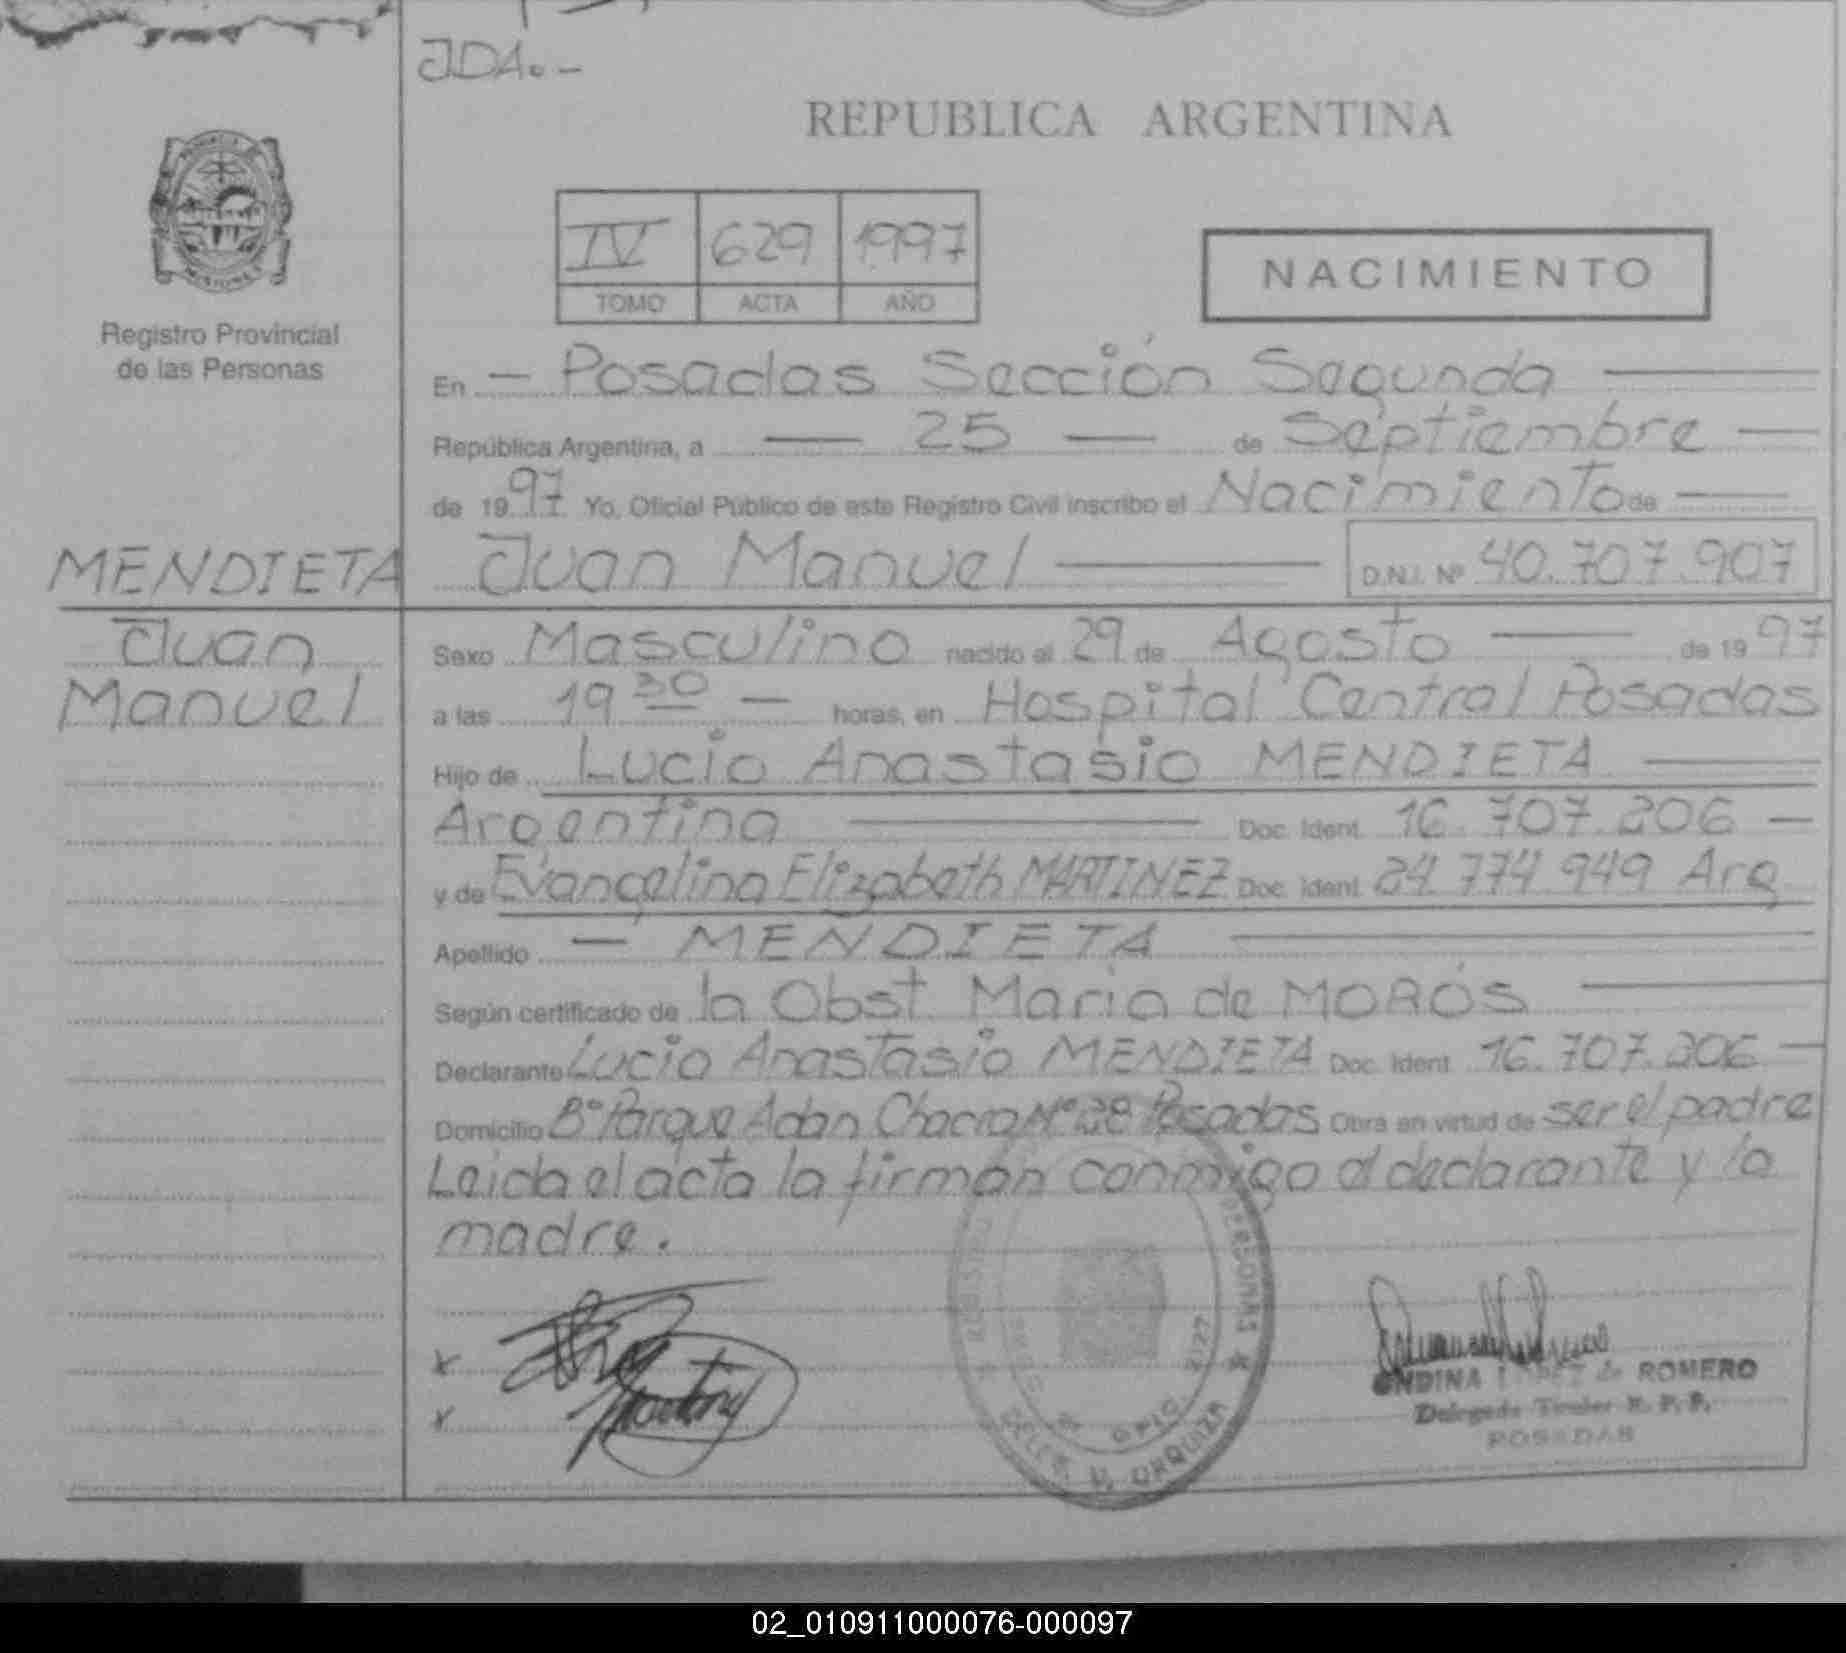 JDA.-
REPUBLICA ARGENTINA
IV 629 1997
TOMO ACTA AÑO
NACIMIENTO
Registro Provincial
de las Personas
En - Posadas Sección Segunda
República Argentina, a 25 de Septiembre
de 1997 Yo, Oficial Público de este Registro Civil inscribo el Nacimiento de
MENDIETA Juan Manuel D.N.I. Nº 40.707.907
Juan
Manuel
Sexo Masculino nacido el 29 de Agosto de 1997
a las 19 30 - horas, en Hospital Central Posadas
Hijo de Lucio Anastasio MENDIETA
Argentino Doc. Ident. 16.707.206 -
y de Evangelina Elizabeth MARTINEZ Doc. Ident. 24.774.949 Arg
Apellido - MENDIETA
Según certificado de la Obst. Maria de MOROS
Declarante Lucio Anastasio MENDIETA Doc. Ident. 16.707.206 -
Domicilio Bº Parque Adan Chacra Nº 38 Posadas Obra en virtud de ser el padre
Leida el acta la firman conmigo el declarante y la
madre.
x
x
REGISTRO PERSONAS
DELEG. U. URQUIZA
ONDINA LOPEZ de ROMERO
Delegada Titular R. P. P.
POSADAS
02_010911000076-000097